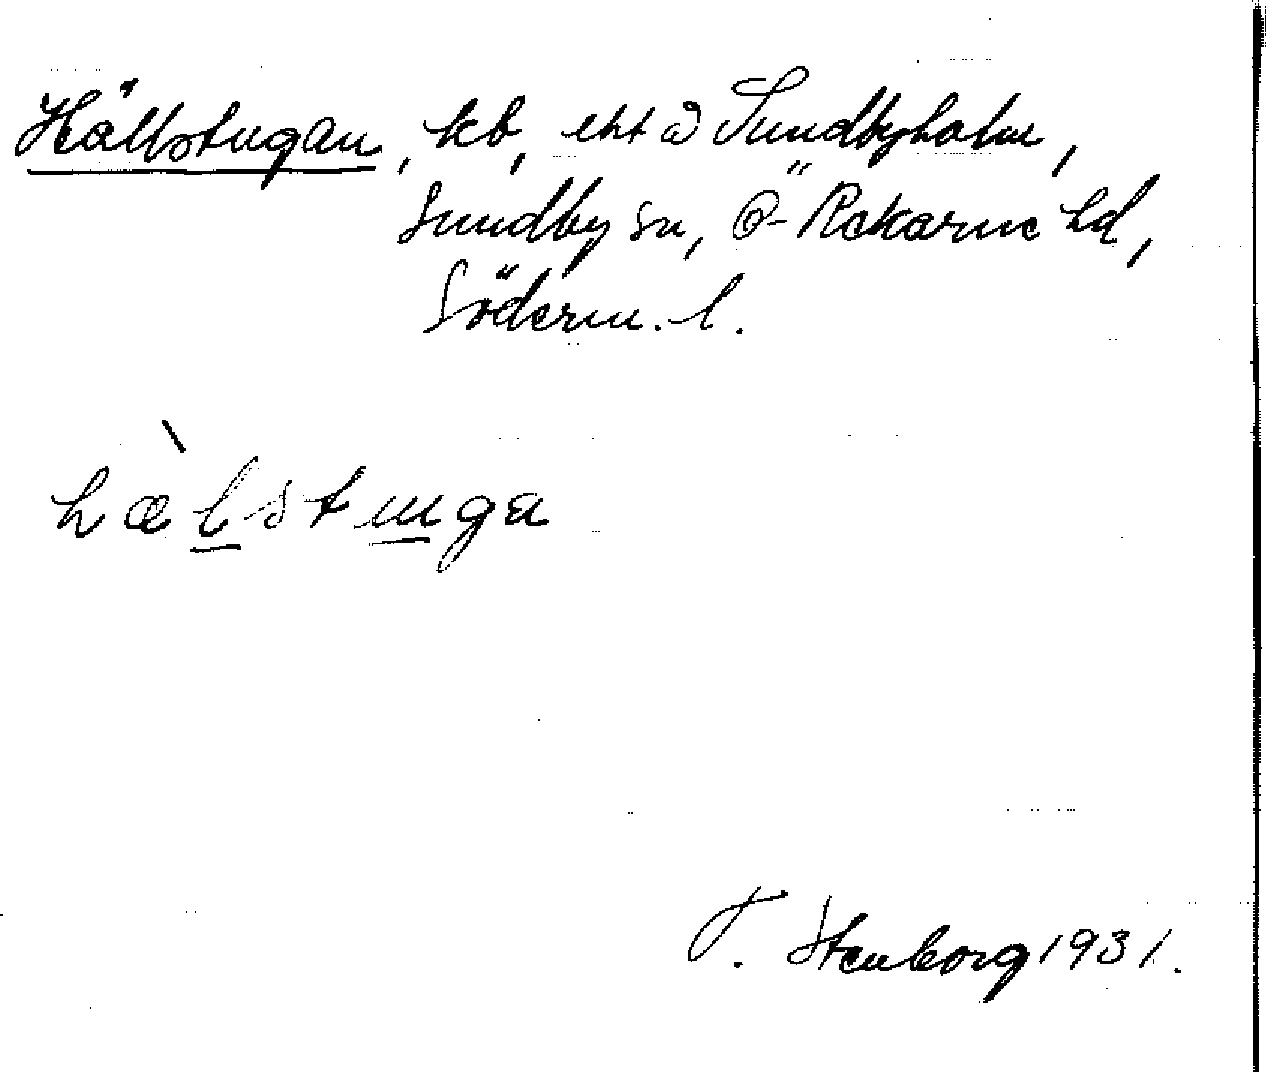 Hällstugan, kb, ekt å Sundbyholm,
Sundby sn, Ö-Rekarne hd,
Söderm. l.
hæ̀lstuga
T. Stenborg 1931.